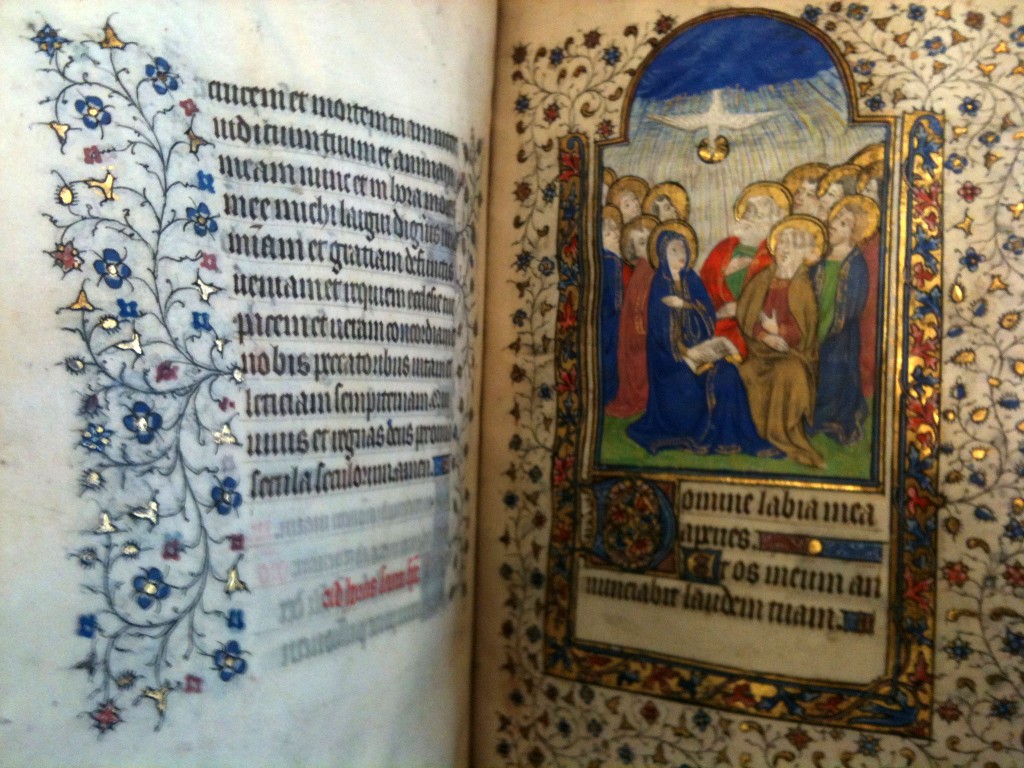 crucem et mortem tuam inter
iudicium tuum et animam
meam nunc et in hora mortis
mee michi largiri digneris
miam et gratiam defunctis
ueniam et requiem ecclesie tue
pacem et ueram concordiam
nobis peccatoribus uitam et
leticiam sempiternam. Qui
uiuis et regnas deus per omnia
secula seculorum amen.
Domine labia mea
aperies.
Et os meum an
nunciabit laudem tuam.